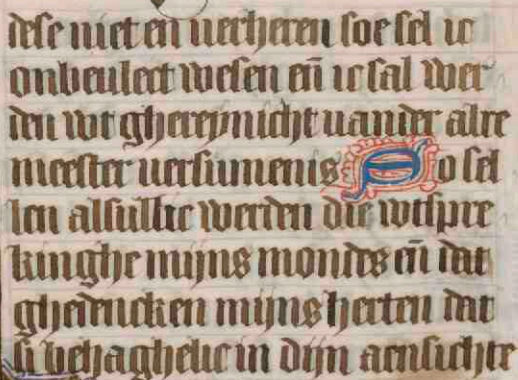 dese niet en verheren soe sel ic
onbeulect wesen en̄ ic sal wer
den wt ghereynicht vander alre
meester versumenis So sel
len alsulke werden die wtspre
kinghe mijns mondes en̄ dat
ghedencken mijns herten dat
si behaghelic in dijn aensichte